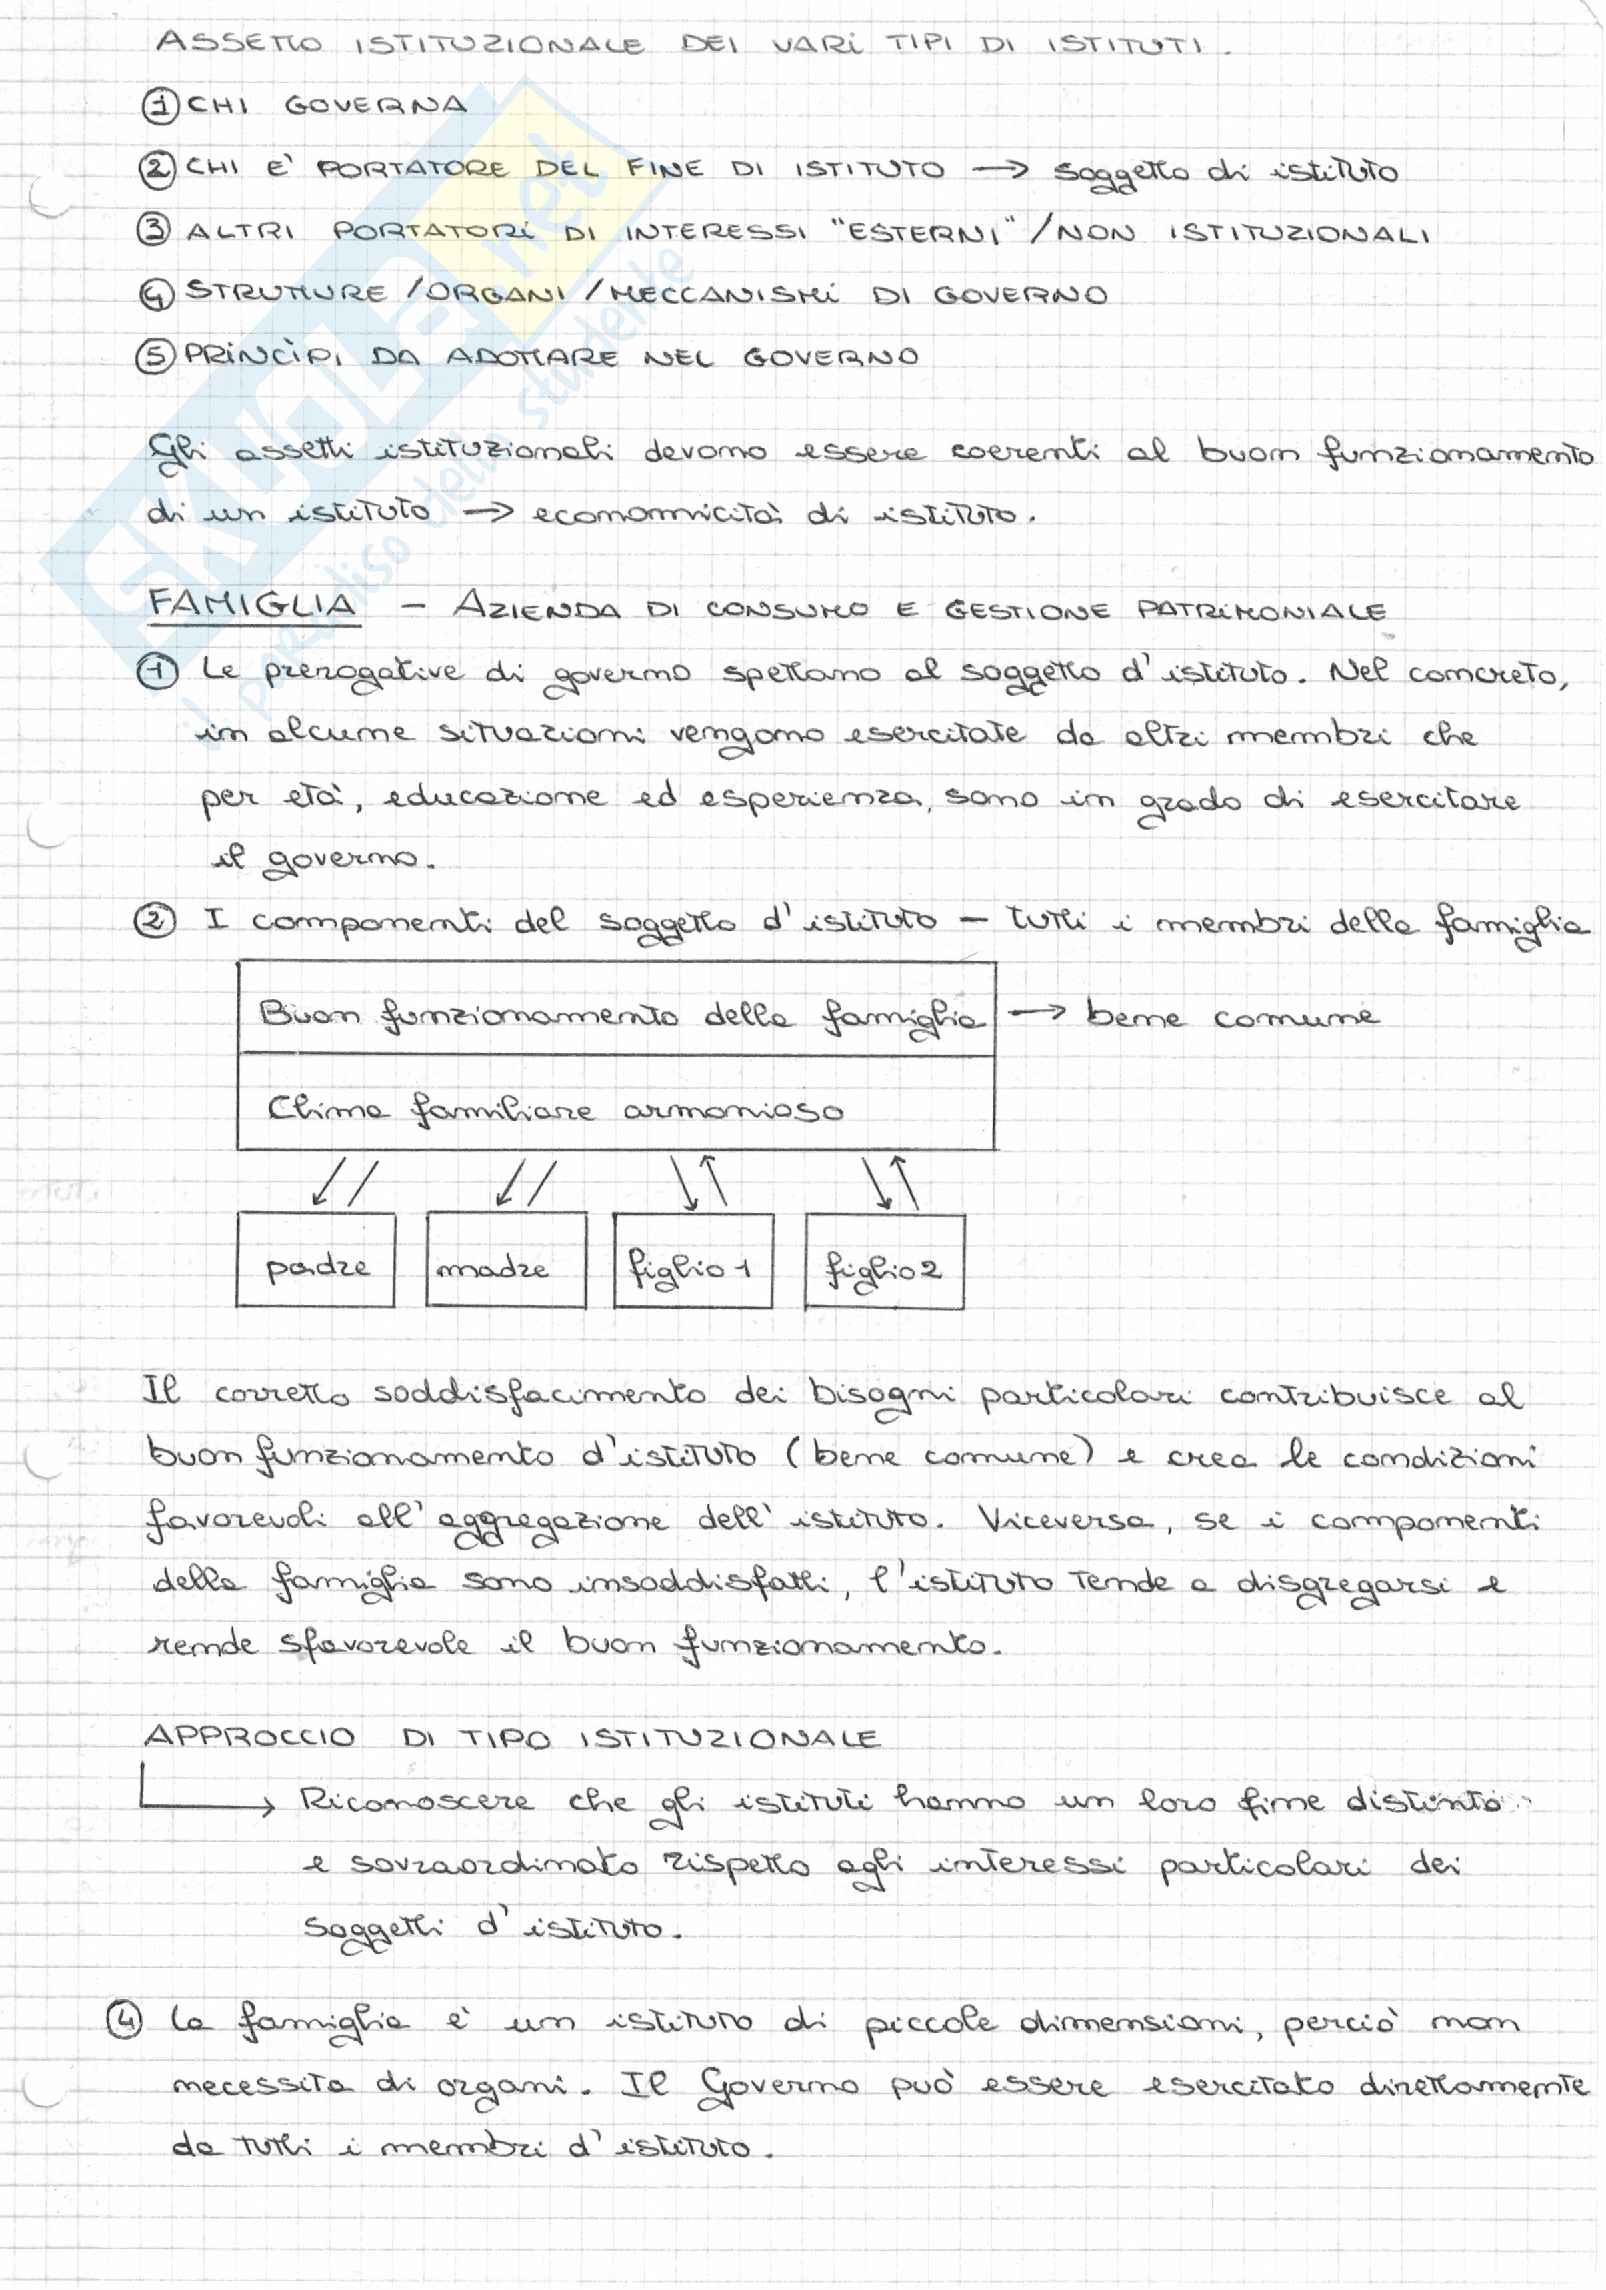 ASSETTO ISTITUZIONALE DEI VARI TIPI DI ISTITUTI.
① CHI GOVERNA
② CHI E' PORTATORE DEL FINE DI ISTITUTO → soggetto di istituto
③ ALTRI PORTATORI DI INTERESSI "ESTERNI" / NON ISTITUZIONALI
④ STRUTTURE / ORGANI / MECCANISMI DI GOVERNO
⑤ PRINCÌPI DA ADOTTARE NEL GOVERNO
Gli assetti istituzionali devono essere coerenti al buon funzionamento
di un istituto → economicità di istituto.
FAMIGLIA - AZIENDA DI CONSUMO E GESTIONE PATRIMONIALE
① Le prerogative di governo spettano al soggetto d'istituto. Nel concreto,
in alcune situazioni vengono esercitate da altri membri che
per età, educazione ed esperienza, sono in grado di esercitare
il governo.
② I componenti del soggetto d'istituto - tutti i membri della famiglia
Buon funzionamento della famiglia → bene comune
Clima familiare armonioso
padre madre figlio 1 figlio 2
Il corretto soddisfacimento dei bisogni particolari contribuisce al
buon funzionamento d'istituto (bene comune) e crea le condizioni
favorevoli all'aggregazione dell'istituto. Viceversa, se i componenti
della famiglia sono insoddisfatti, l'istituto tende a disgregarsi e
rende sfavorevole il buon funzionamento.
APPROCCIO DI TIPO ISTITUZIONALE
→ Riconoscere che gli istituti hanno un loro fine distinto
e sovraordinato rispetto agli interessi particolari dei
soggetti d'istituto.
④ La famiglia è un istituto di piccole dimensioni, perciò non
necessita di organi. Il Governo può essere esercitato direttamente
da tutti i membri d'istituto.
SKUOLA.net
il paradiso dello studente